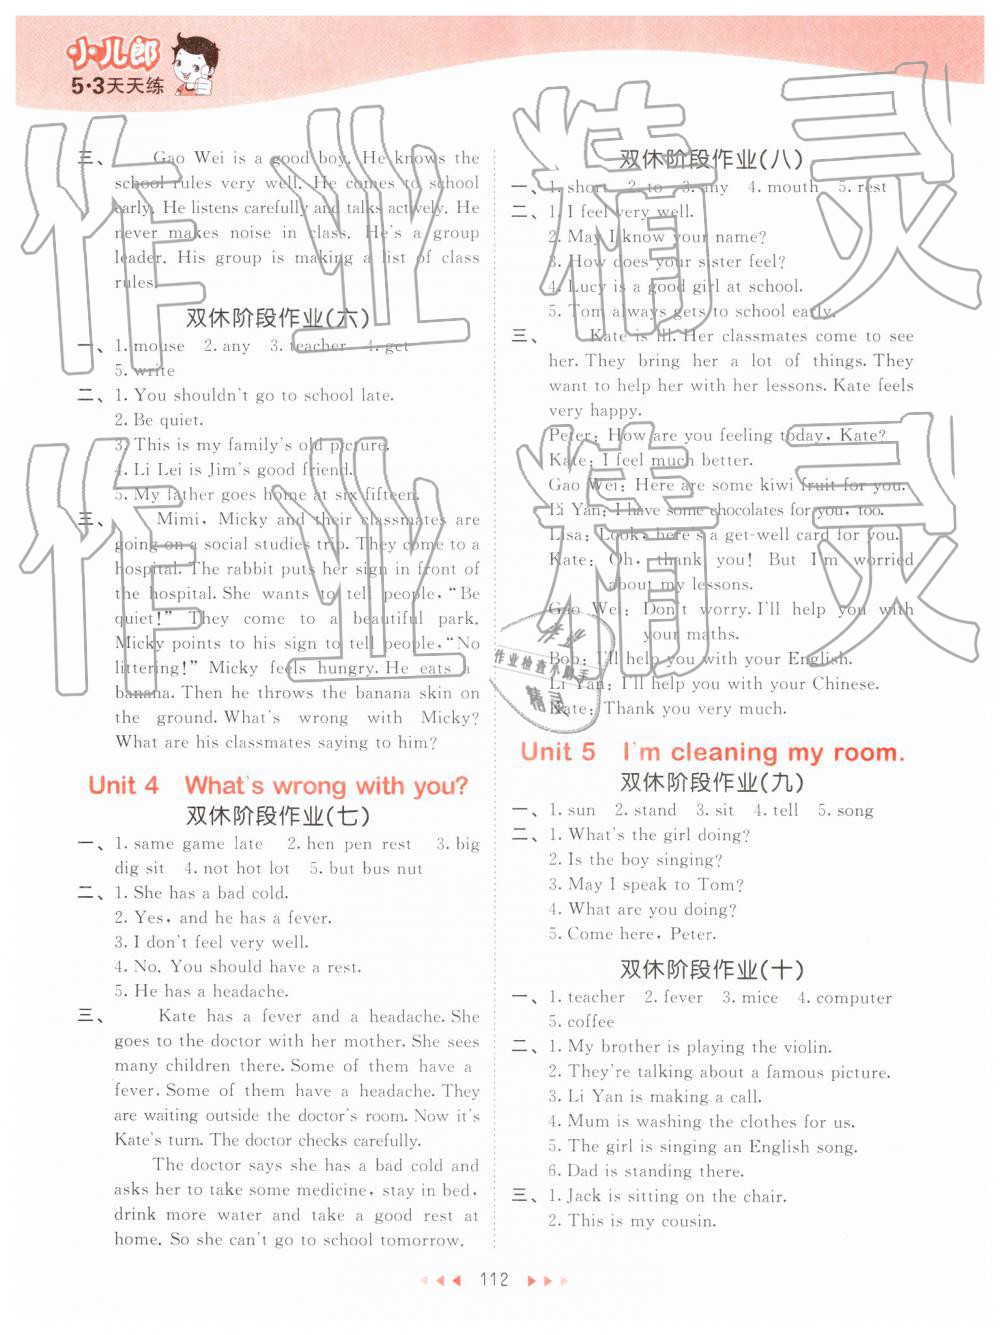 小儿郎
5·3天天练
三、 Gao Wei is a good boy. He knows the
school rules very well. He comes to school
early. He listens carefully and talks actively. He
never makes noise in class. He's a group
leader. His group is making a list of class
rules.
双休阶段作业(六)
一、1. mouse 2. any 3. teacher 4. get
5. write
二、1. You shouldn't go to school late.
2. Be quiet.
3. This is my family's old picture.
4. Li Lei is Jim's good friend.
5. My father goes home at six fifteen.
三、 Mimi, Micky and their classmates are
going on a social studies trip. They come to a
hospital. The rabbit puts her sign in front of
the hospital. She wants to tell people, “Be
quiet!” They come to a beautiful park.
Micky points to his sign to tell people, “No
littering!” Micky feels hungry. He eats a
banana. Then he throws the banana skin on
the ground. What's wrong with Micky?
What are his classmates saying to him?
Unit 4 What's wrong with you?
双休阶段作业(七)
一、1. same game late 2. hen pen rest 3. big
dig sit 4. not hot lot 5. but bus nut
二、1. She has a bad cold.
2. Yes, and he has a fever.
3. I don't feel very well.
4. No. You should have a rest.
5. He has a headache.
三、 Kate has a fever and a headache. She
goes to the doctor with her mother. She sees
many children there. Some of them have a
fever. Some of them have a headache. They
are waiting outside the doctor's room. Now it's
Kate's turn. The doctor checks carefully.
The doctor says she has a bad cold and
asks her to take some medicine, stay in bed,
drink more water and take a good rest at
home. So she can't go to school tomorrow.
双休阶段作业(八)
一、1. short 2. to 3. my 4. mouth 5. rest
二、1. I feel very well.
2. May I know your name?
3. How does your sister feel?
4. Lucy is a good girl at school.
5. Tom always gets to school early.
三、 Kate is ill. Her classmates come to see
her. They bring her a lot of things. They
want to help her with her lessons. Kate feels
very happy.
Peter: How are you feeling today, Kate?
Kate: I feel much better.
Gao Wei: Here are some kiwi fruit for you.
Li Yan: I have some chocolates for you, too.
Lisa: Look, here's a get-well card for you.
Kate: Oh, thank you! But I'm worried
about my lessons.
Gao Wei: Don't worry. I'll help you with
your maths.
Bob: I'll help you with your English.
Li Yan: I'll help you with your Chinese.
Kate: Thank you very much.
Unit 5 I'm cleaning my room.
双休阶段作业(九)
一、1. sun 2. stand 3. sit 4. tell 5. song
二、1. What's the girl doing?
2. Is the boy singing?
3. May I speak to Tom?
4. What are you doing?
5. Come here, Peter.
双休阶段作业(十)
一、1. teacher 2. fever 3. mice 4. computer
5. coffee
二、1. My brother is playing the violin.
2. They're talking about a famous picture.
3. Li Yan is making a call.
4. Mum is washing the clothes for us.
5. The girl is singing an English song.
6. Dad is standing there.
三、1. Jack is sitting on the chair.
2. This is my cousin.
112
作业精灵
作业精灵
作业
作业检查小助手
精灵